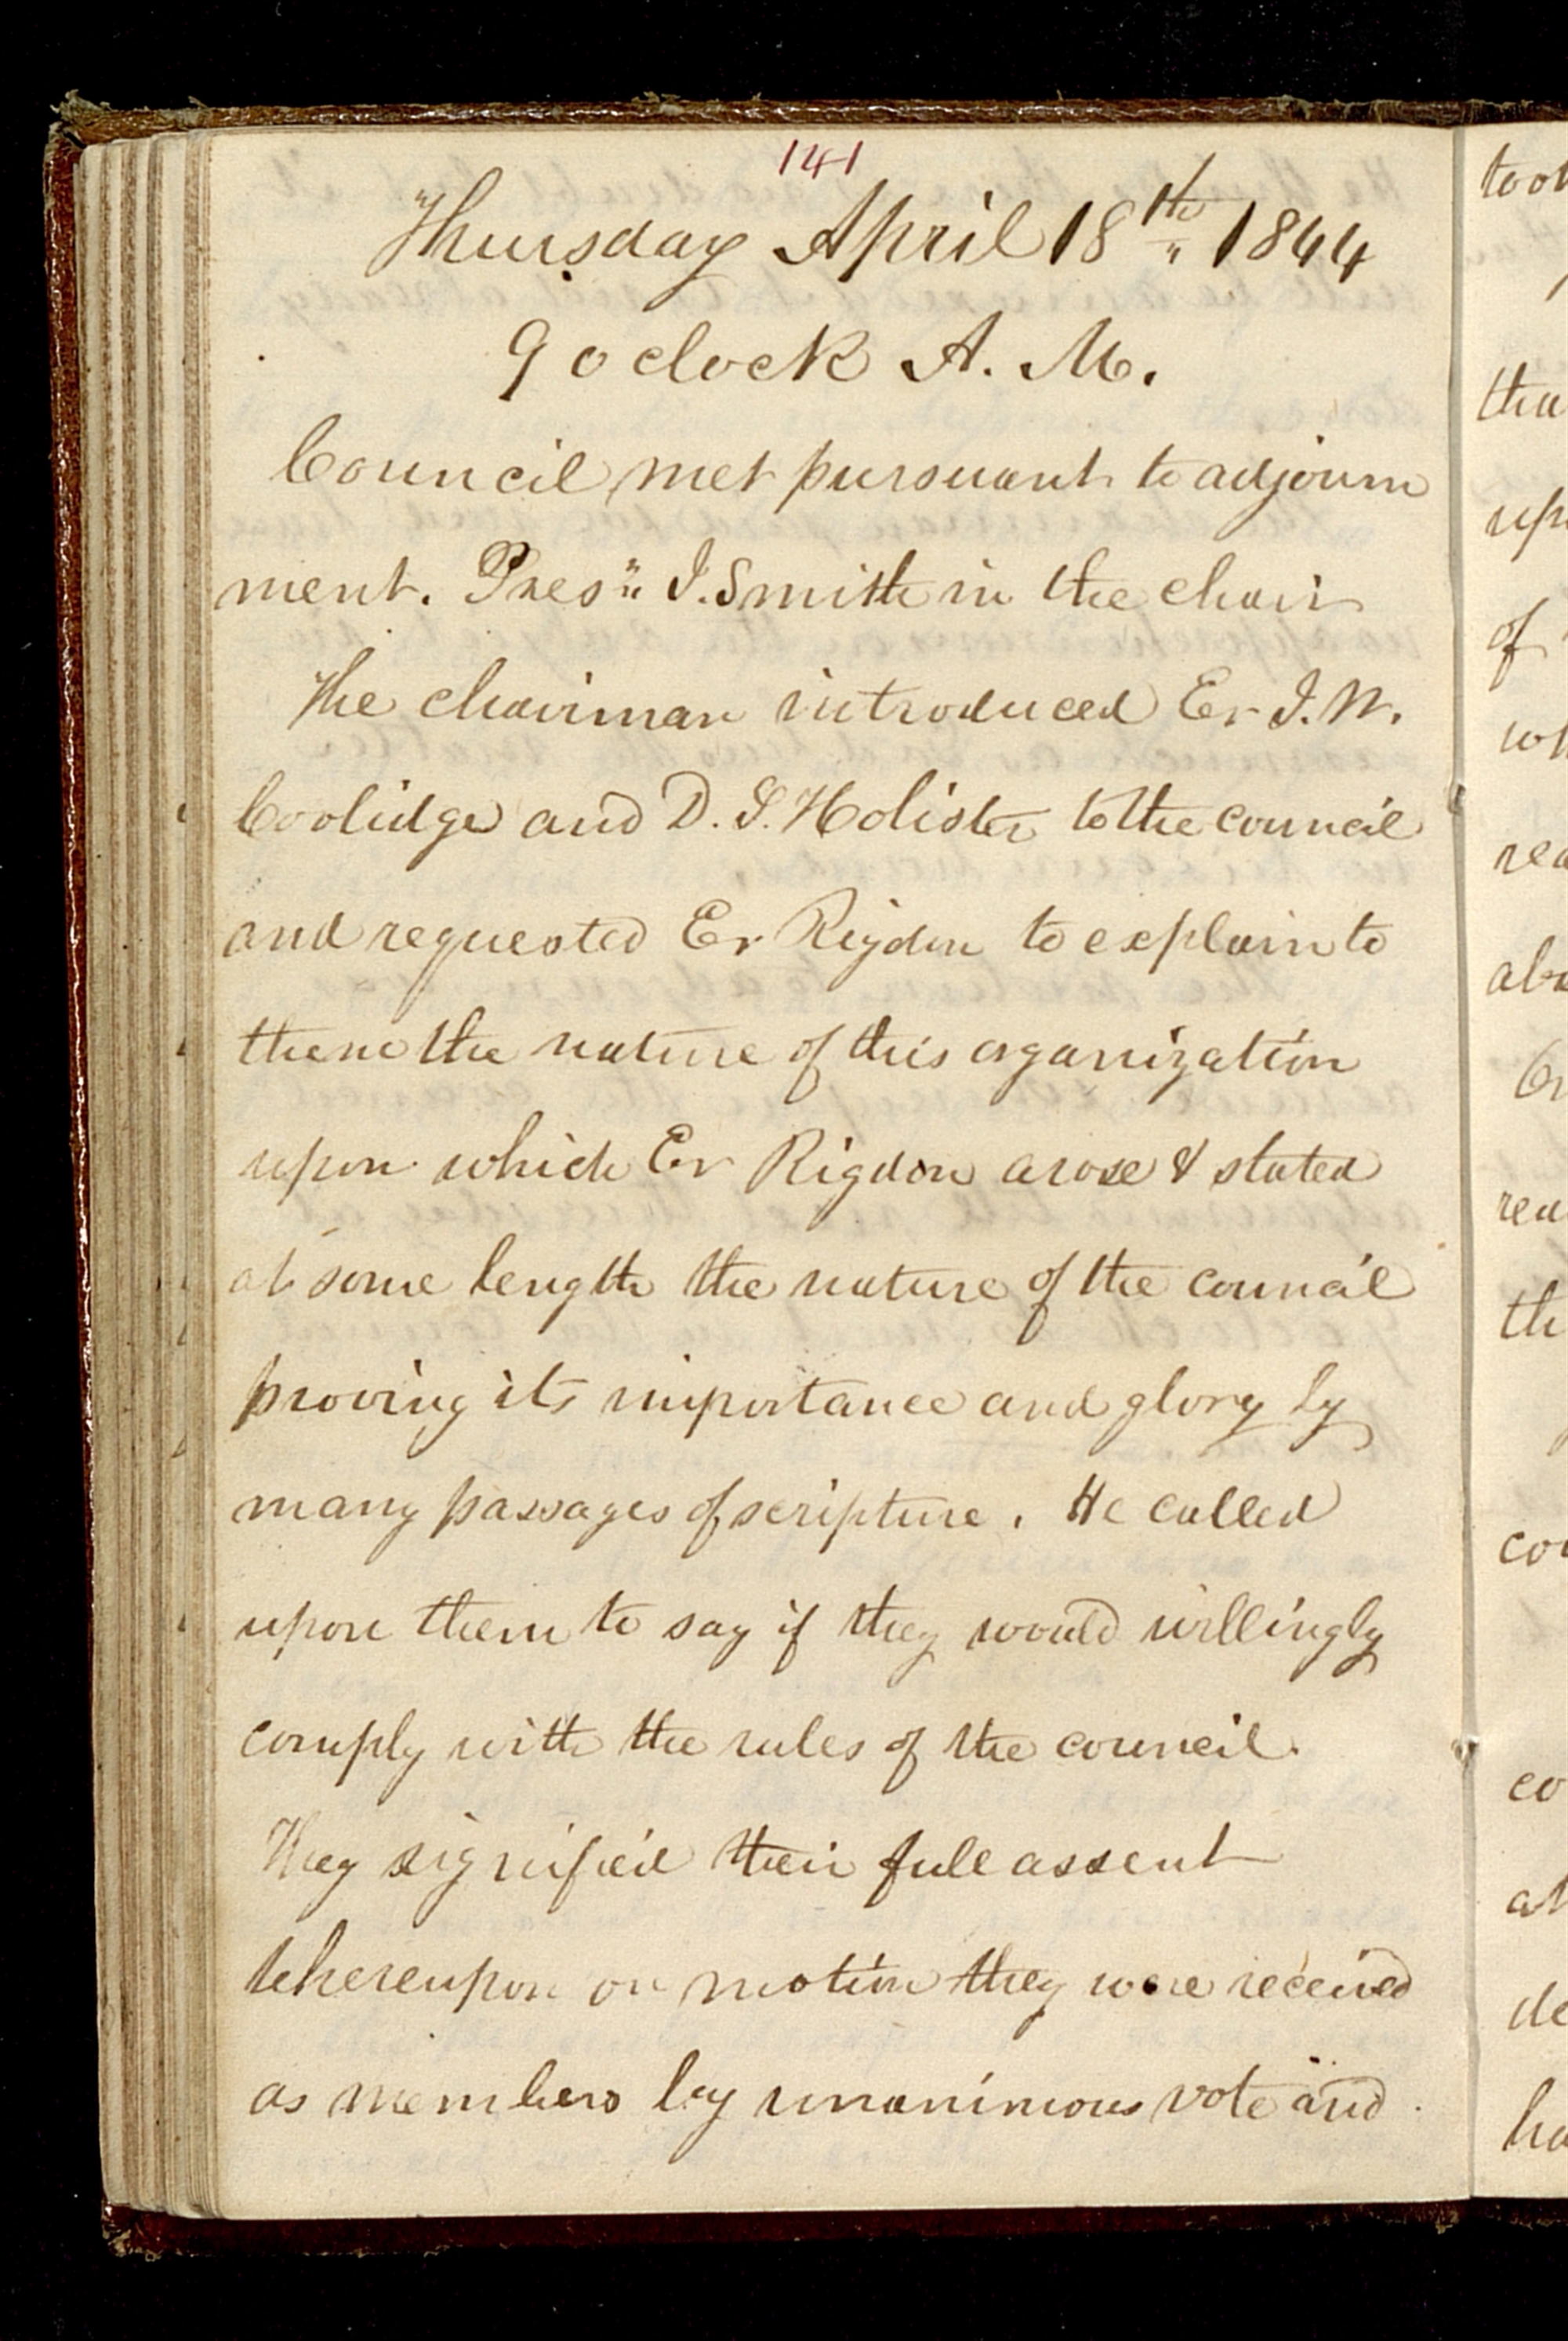 141
Thursday April 18th " 1844
9 o clock A. M.
Council met pursuant to adjourn
ment. Pres" J. Smith in the chair
The chairman introduced Er J. W.
Coolidge and D. S. Holister to the council
and requested Er Rigdon to explain to
them the nature of this organization
upon which Er Rigdon arose & stated
at some length the nature of the council
proving its importance and glory by
many passages of scripture. He called
upon them to say if they would willingly
comply with the rules of the council.
They signified their full assent
whereupon on motion they were received
as members by unanimous vote and